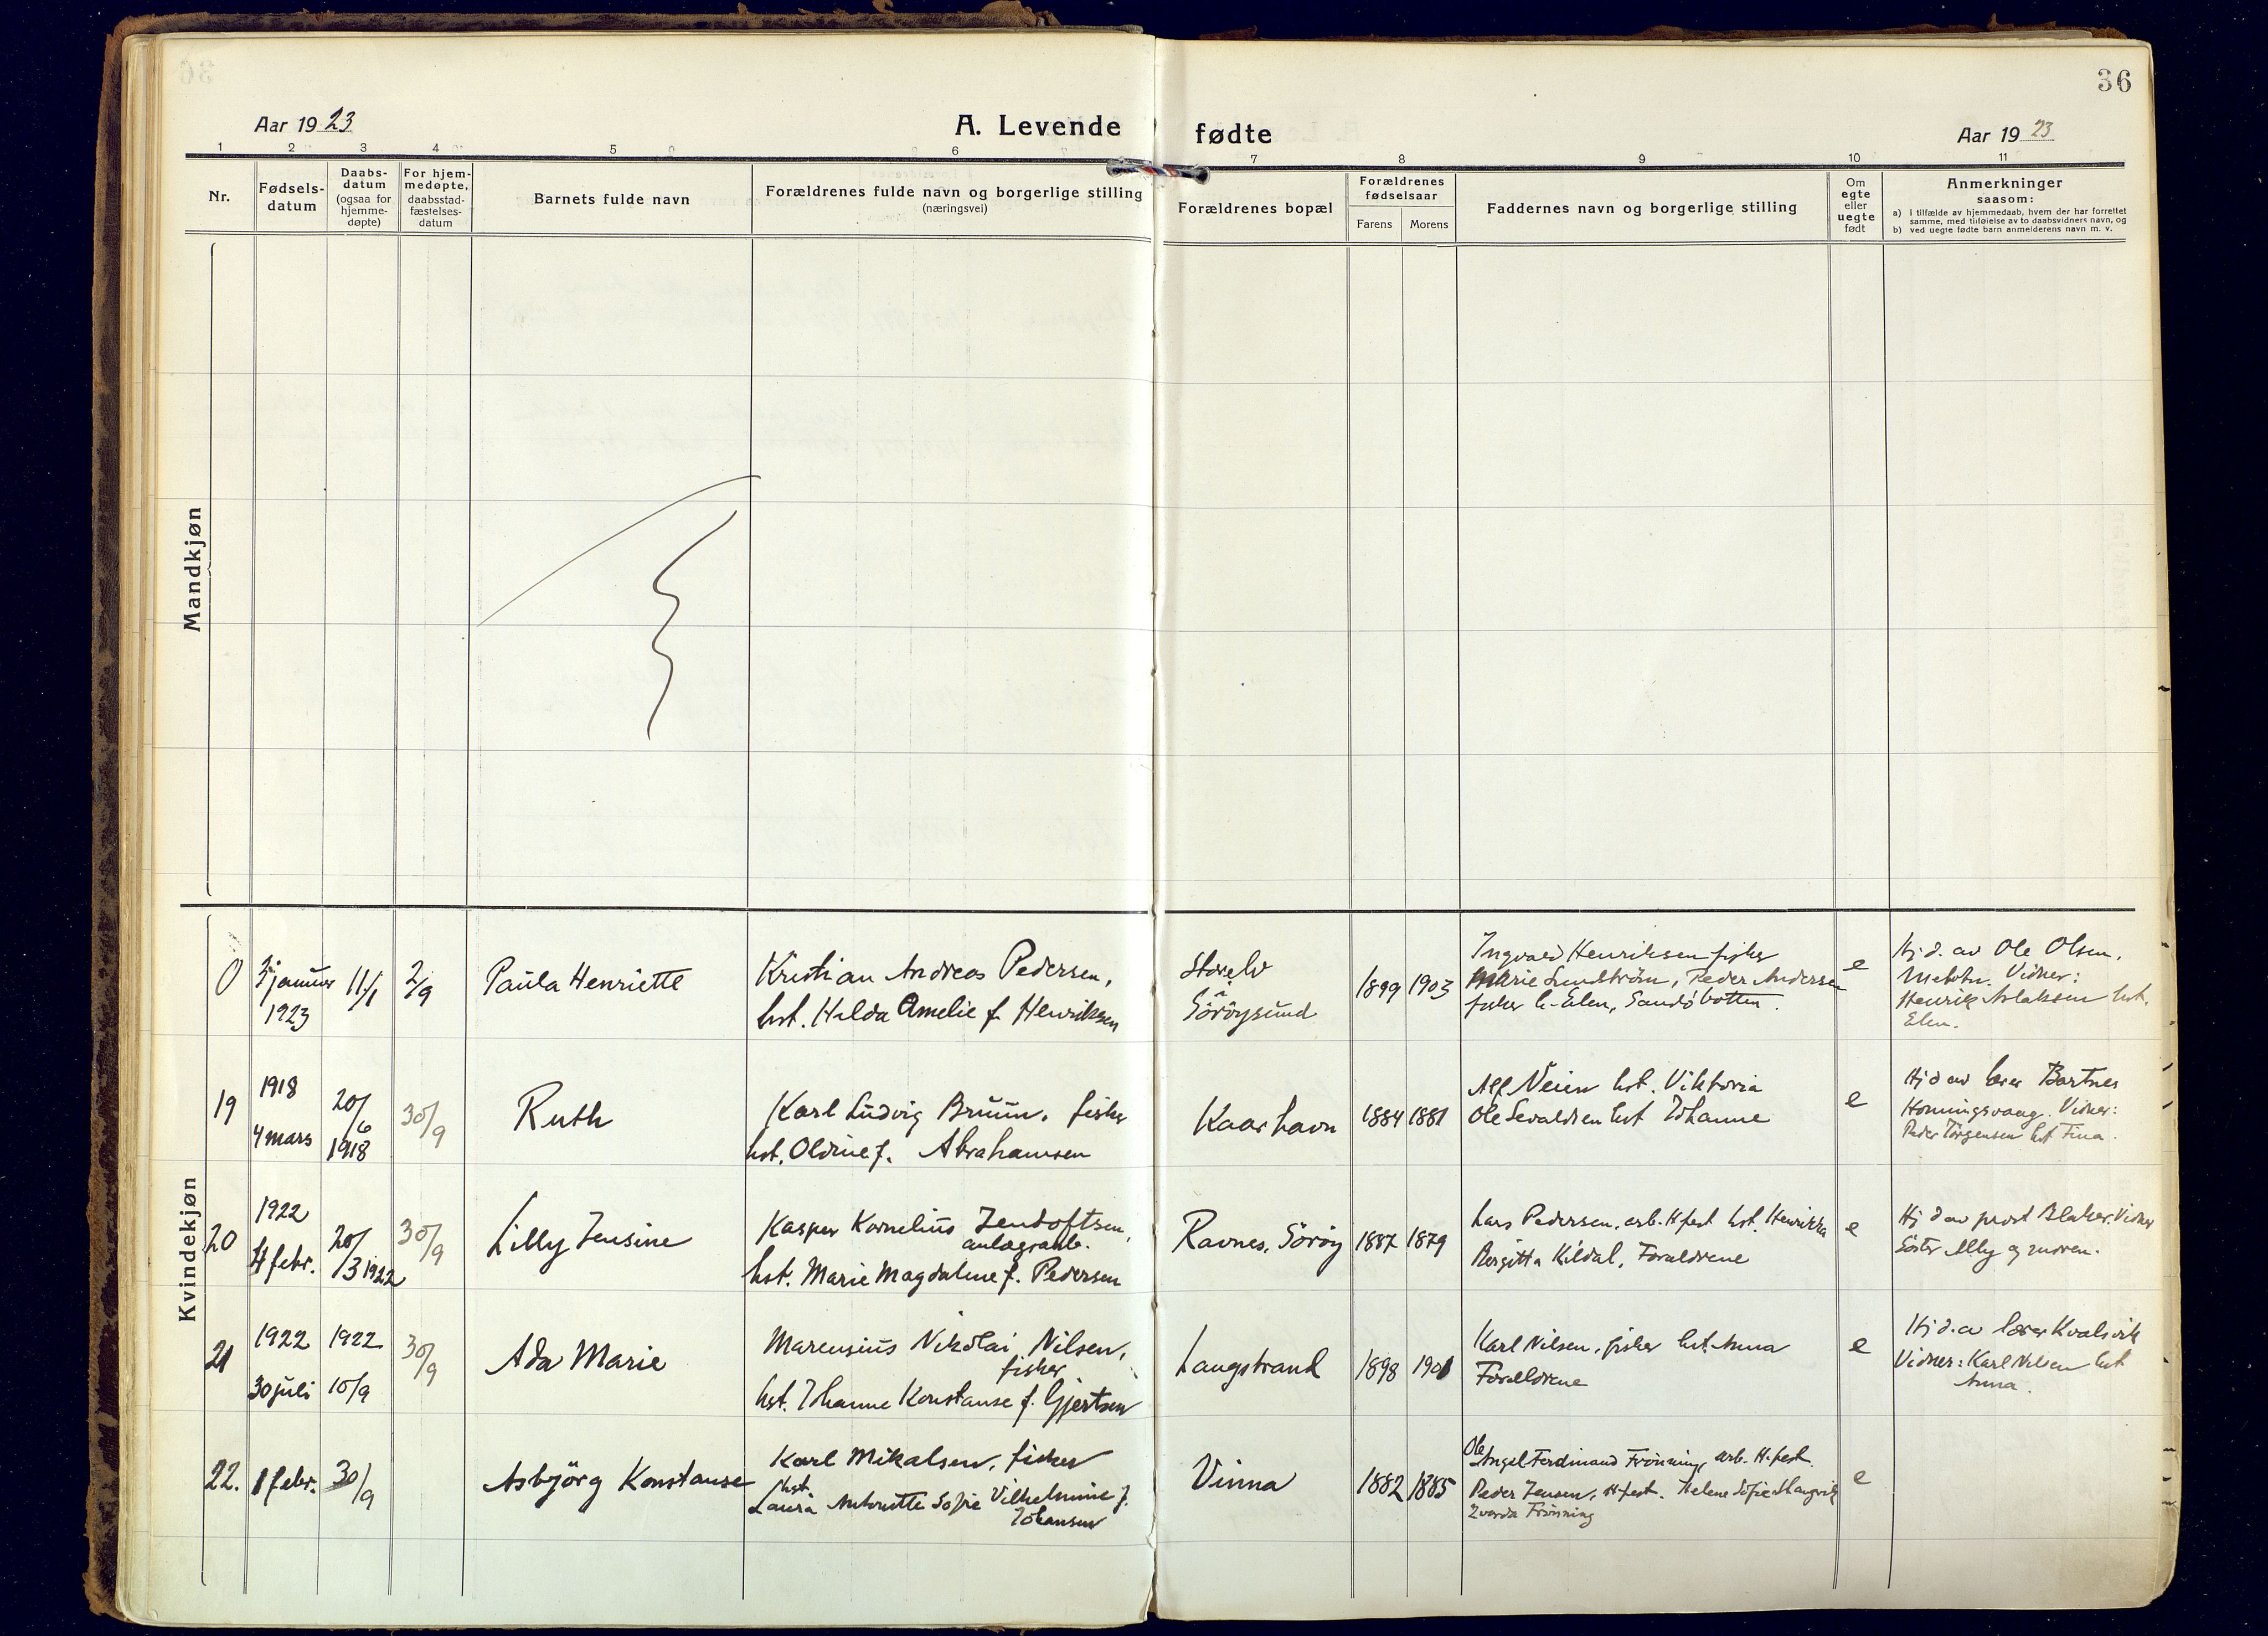 36
Aar 1923
A. Levende fødte
Aar 1923
1 2 3 4 5 6 7 8 9 10 11
Nr.
Fødsels-
datum
Daabs-
datum
(ogsaa for
hjemme-
døpte)
For hjem-
medøpte,
daabsstad-
fæstelses-
datum
Barnets fulde navn
Forældrenes fulde navn og borgerlige stilling
(næringsvei)
Forældrenes bopæl
Forældrenes
fødselsaar
Farens Morens
Faddernes navn og borgerlige stilling
Om
egte
eller
uegte
født
Anmerkninger
saasom:
a) I tilfælde av hjemmedaab, hvem der har forrettet
samme, med tilføielse av to daabsvidners navn, og
b) ved uegte fødte barn anmelderens navn m. v.
Mandkjøn
Kvindekjøn
0
januar
1923
11/1
2/9
Paula Henriette
Kristian Andreas Pedersen,
hst. Hilda Amelie f. Henriksen
Storelv
i
Söröysund
1899 1903
Ingvald Henriksen fisker
Marie Lundström, Peder Andersen
fisker h. Elen, Sandöbotten.
e
Hj.d. av Ole Olsen,
Vidner:
Henrik Aslaksen hst.
Elen.
19
1918
4 mars
20/6
1918
30/9
Ruth
Karl Ludvig Bruun, fisker
hst. Oldine f. Abrahamsen
Kaarhavn
1884 1881
Alf Veien hst. Viktoria
Ole Sevaldsen hst Johanne
e
Hj d av lærer Bartnes
Honningsvaag. Vidner:
Peder Jörgensen hst Fina.
20
1922
4 febr.
20/3 1922
30/9
Lilly Jensine
Kasper Kornelius Zendoftsen,
anlægsarb.
hst. Marie Magdalene f. Pedersen
Ravnes, Söröy
1887 1879
Lars Pedersen, arb. H.fest hst. Henrikka
Bergitta Kildal, Forældrene
e
Hj d av prost Blaker. Vidner
Söster Elly og moren.
21
1922
30 juli
1922
10/9
30/9
Ada Marie
Marensius Nikolai Nilsen,
fisker
hst. Johanne Konstanse f. Gjertsen
Langstrand
1898 1901
Karl Nilsen, fisker hst. Anna
Forældrene
e
Hj.d. av lærer Kvalsvik
Vidner: Karl Nilsen hst
Anna.
22.
1 febr.
30/9
Asbjörg Konstanse
Karl Mikalsen, fisker
hst.
Laura Antonette Sofie Vilhelmine f.
Johansen
Vinna
1882 1885
Ole
Angel Ferdinand Frönning, arb. H.fest.
Peder Jensen, H.fest. Helene Sofie
Frönning
e